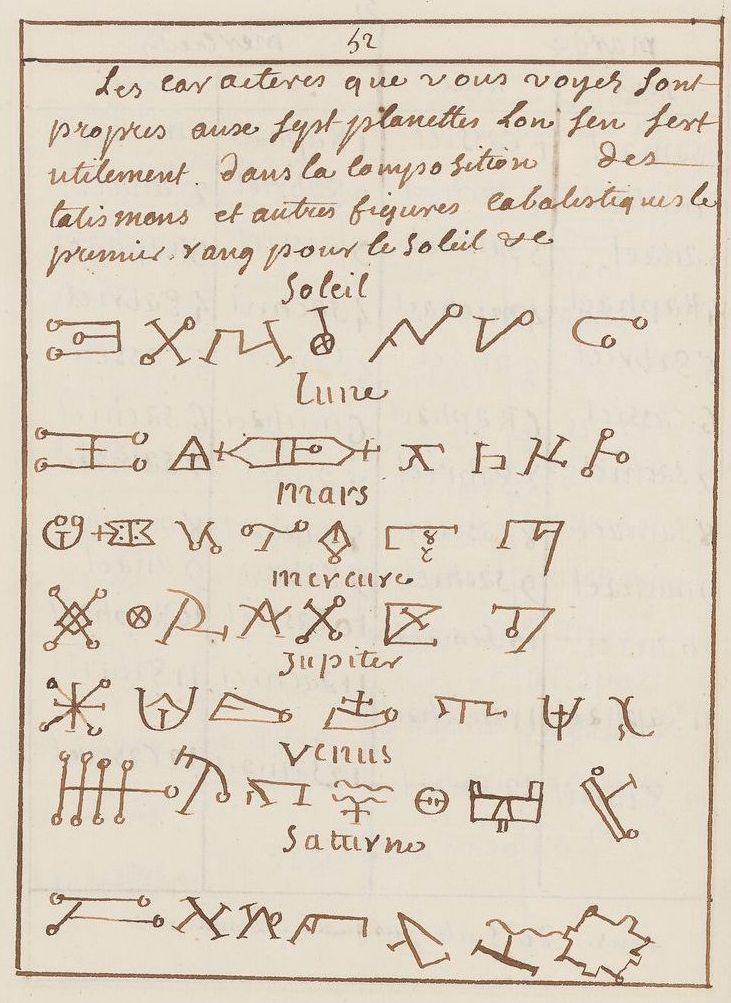 52
Les caracteres que vous voyes sont
propres auxe sept planettes Lon sen sert
utilement. dans la composition des
talismans et autres figures cabalistiques le
premier rang pour le soleil &c
Soleil
Lune
mars
mercure
Jupiter
Venus
Saturne